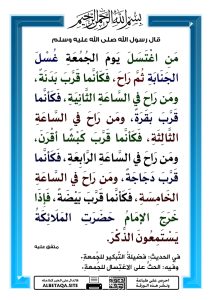 بسم الله الرحمن الرحيم
قال رسول الله صلى الله عليه وسلم
مَنِ اغْتَسَلَ يَوْمَ الجُمُعَةِ غُسْلَ
الجَنَابَةِ ثُمَّ رَاحَ، فَكَأَنَّمَا قَرَّبَ بَدَنَةً،
وَمَنْ رَاحَ فِي السَّاعَةِ الثَّانِيَةِ، فَكَأَنَّمَا
قَرَّبَ بَقَرَةً، وَمَنْ رَاحَ فِي السَّاعَةِ
الثَّالِثَةِ، فَكَأَنَّمَا قَرَّبَ كَبْشًا أَقْرَنَ،
وَمَنْ رَاحَ فِي السَّاعَةِ الرَّابِعَةِ، فَكَأَنَّمَا
قَرَّبَ دَجَاجَةً، وَمَنْ رَاحَ فِي السَّاعَةِ
الخَامِسَةِ، فَكَأَنَّمَا قَرَّبَ بَيْضَةً، فَإِذَا
خَرَجَ الإِمَامُ حَضَرَتِ المَلَائِكَةُ
يَسْتَمِعُونَ الذِّكْرَ.
متفق عليه
في الحديث: فضيلة التبكير للجمعة.
وفيه: الحث على الاغتسال للجمعة.
ALBETAQA.SITE